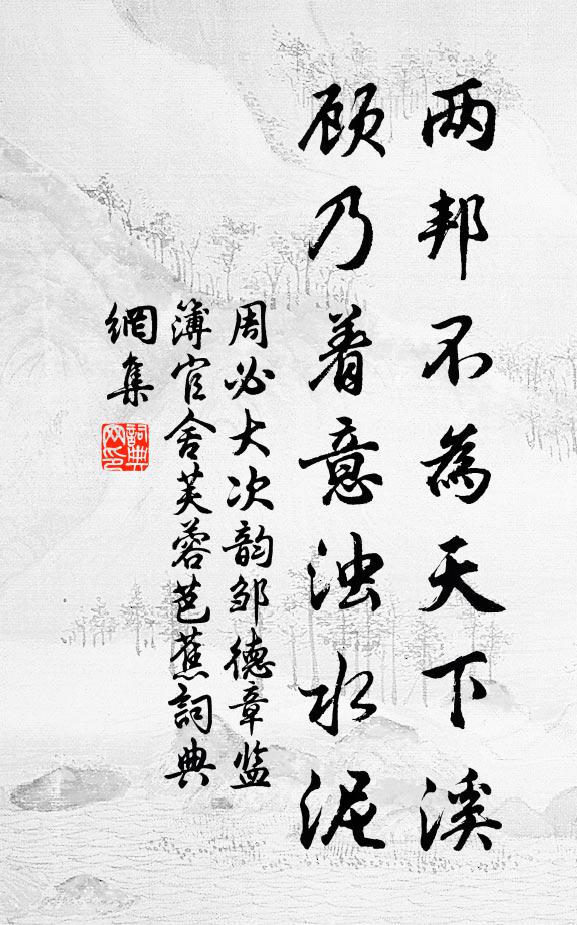 两邦不為天下溪
顾乃着意浊水泥
周必大次韵邹德章监
簿官舍芙蓉芭蕉詞典
網集
詞典
网印